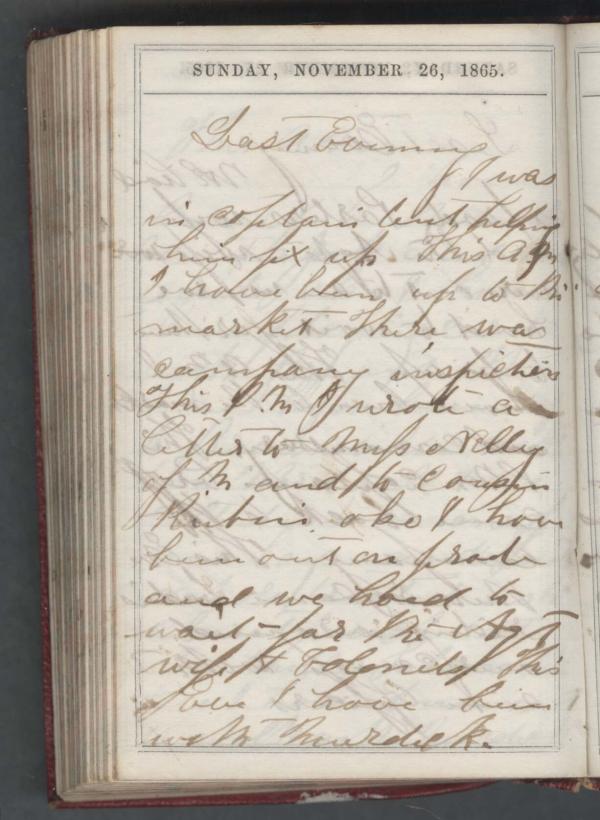 SUNDAY, NOVEMBER 26, 1865.
Last Evening
I was
in captain tent helping
him fix up This A M
I have been up to the
market There was
company inspection
This P.M I wrote a
letter to Miss Nelly
of M and to Cousin
Rubin also I have
been out on prade
and we had to
wait for the
wife & This
Eve I have been
with Murdick.